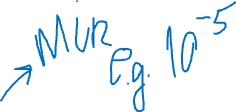 Min
e.g. 10^-5